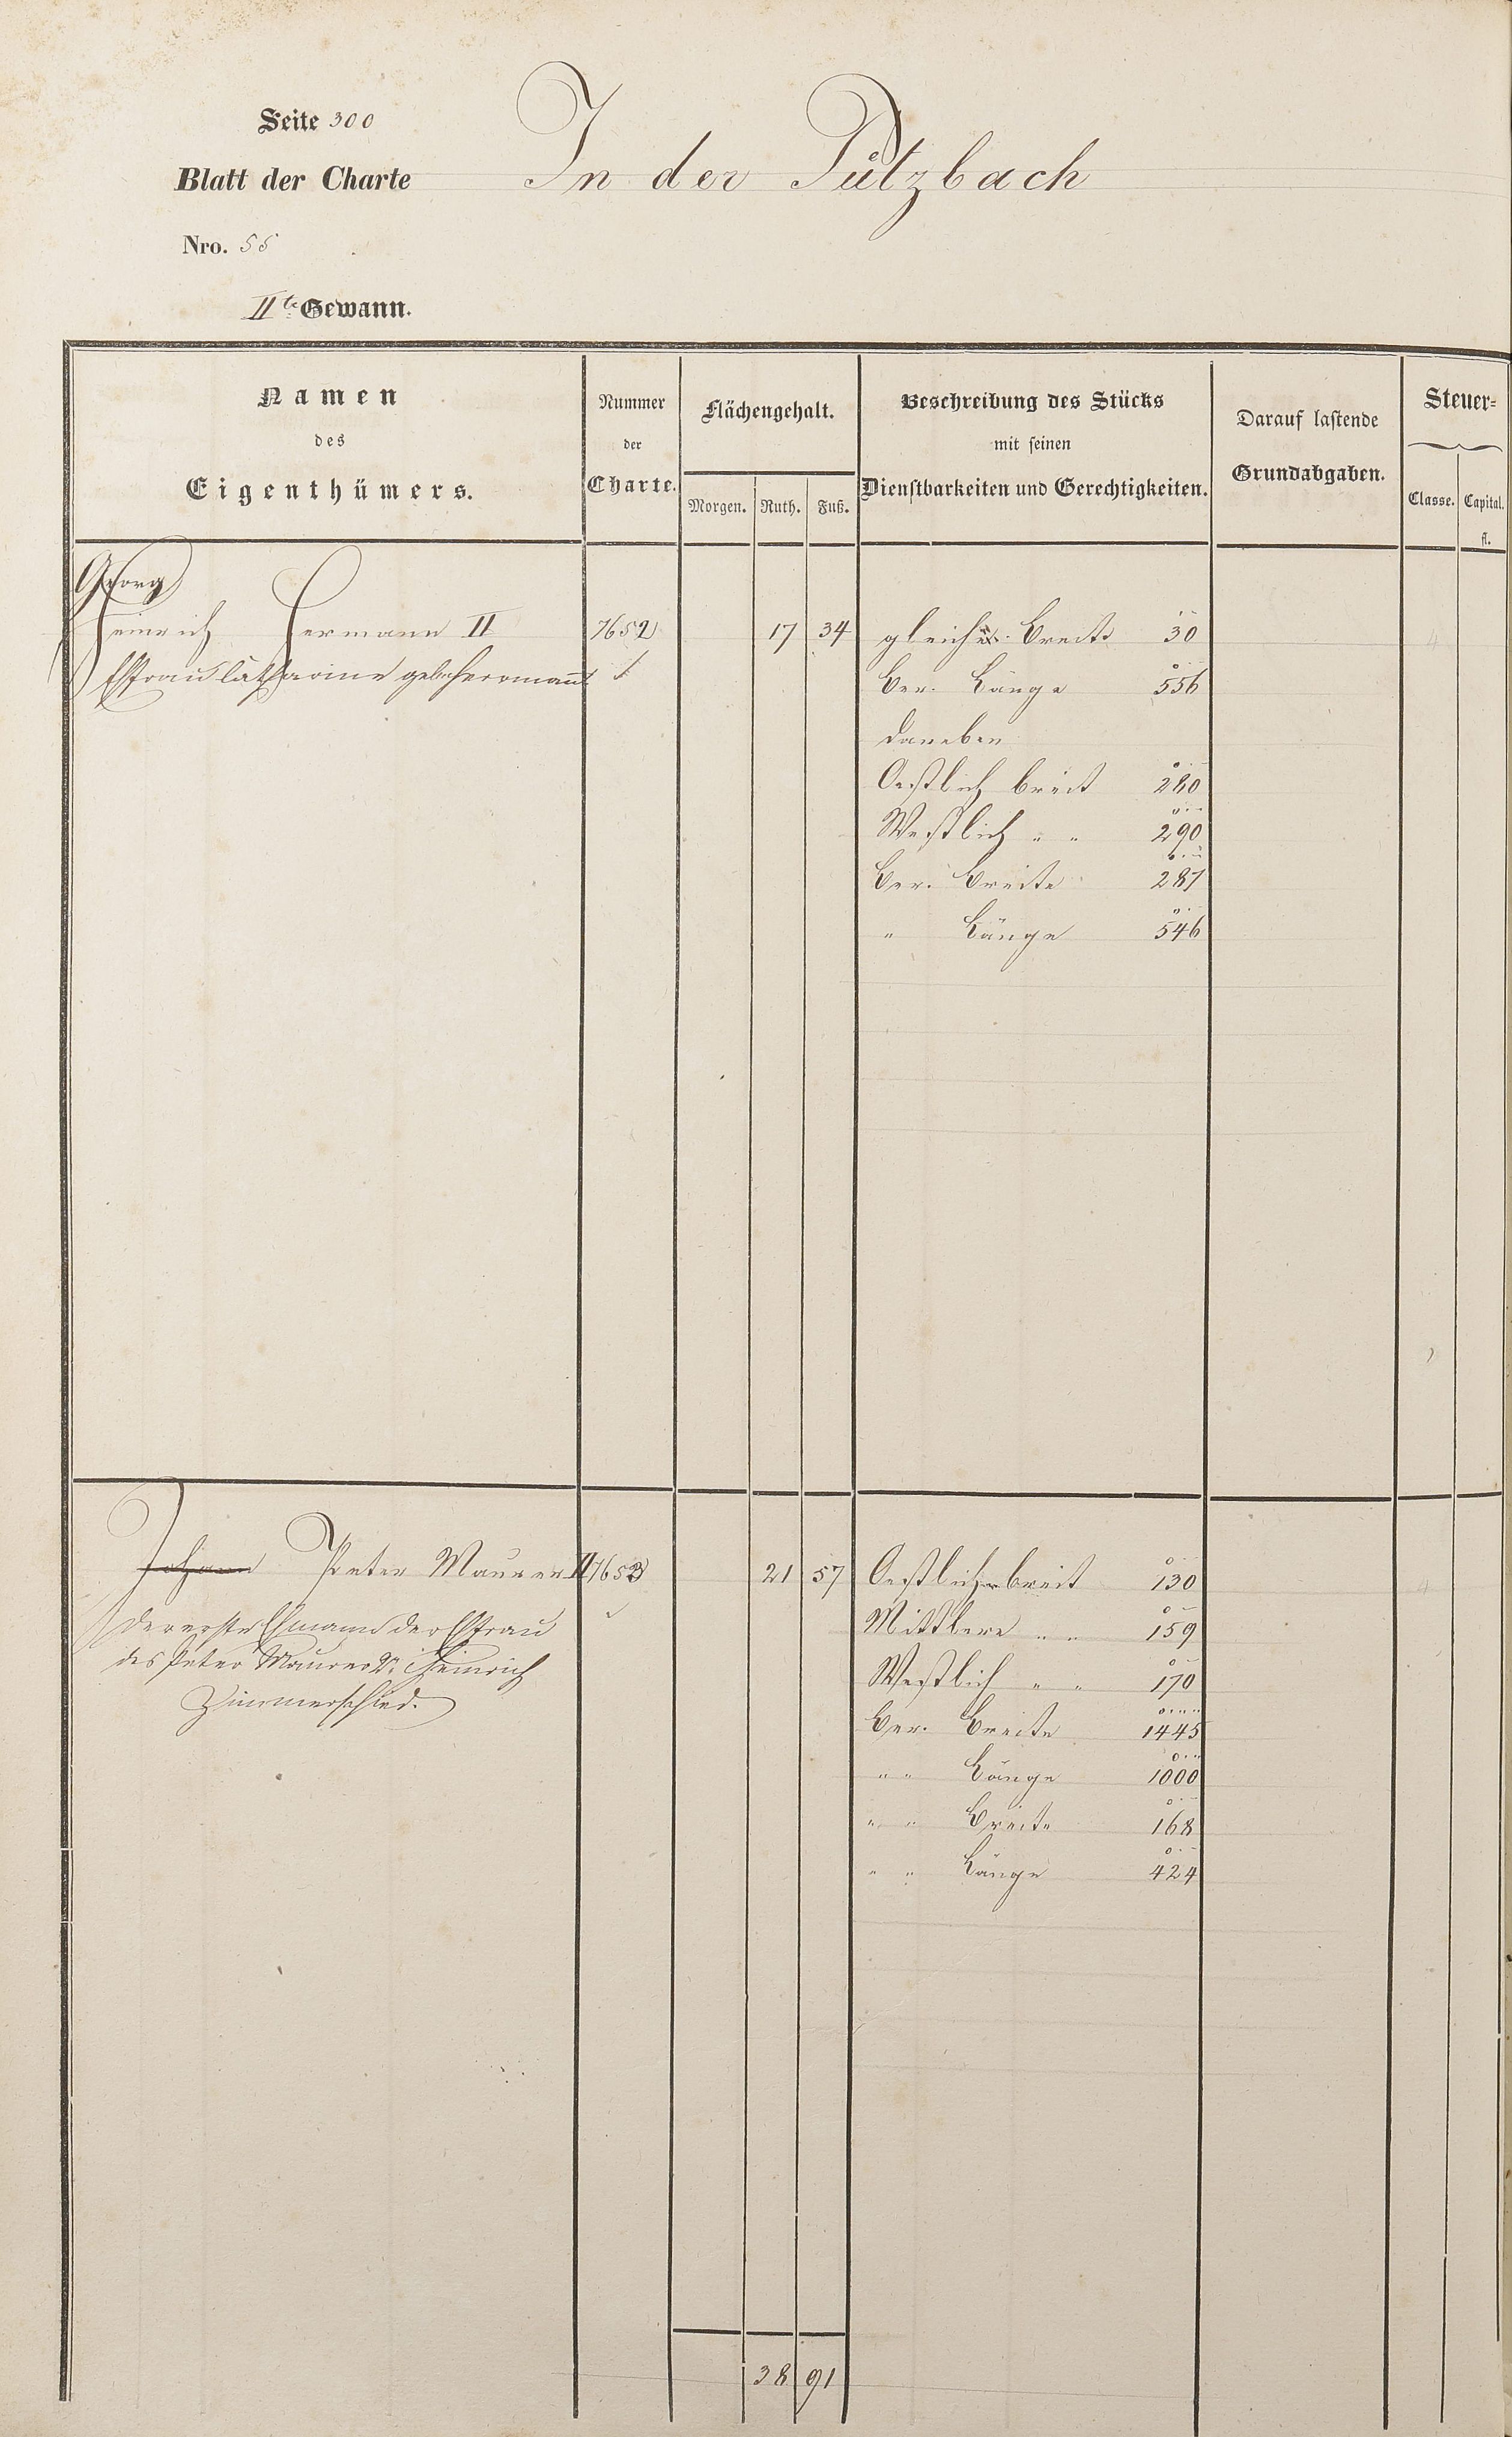 Seite 300
Blatt der Charte
In der Pützbach
Nro. 55
IIte Gewann.
Namen
des
Eigenthümers.
Nummer
der
Charte.
Flächengehalt.
Morgen. Ruth. Fuß.
Beschreibung des Stücks
mit seinen
Dienstbarkeiten und Gerechtigkeiten.
Darauf lastende
Grundabgaben.
Steuer-
Classe. Capital.
fl.
Georg
Heinrich Hermann II 7652 17 34 gleiche Breite 30
Ehfrau Catharine geb. Herrmann
ber. Länge 556
daneben
Oestlich breit 280
Westlich " " 290
ber. Breite 287
" Länge 546
Johann Peter Maurer II 7653 21 57 Oestlich breit 130
der erste Ehmann der Ehfrau
des Peter Maurer 2r: Heinrich
Zimmerschied.
Mittlere " " 159
Westlich " " 170
ber. Breite 1445
" " Länge 1000
" " Breite 168
" " Länge 424
38 91